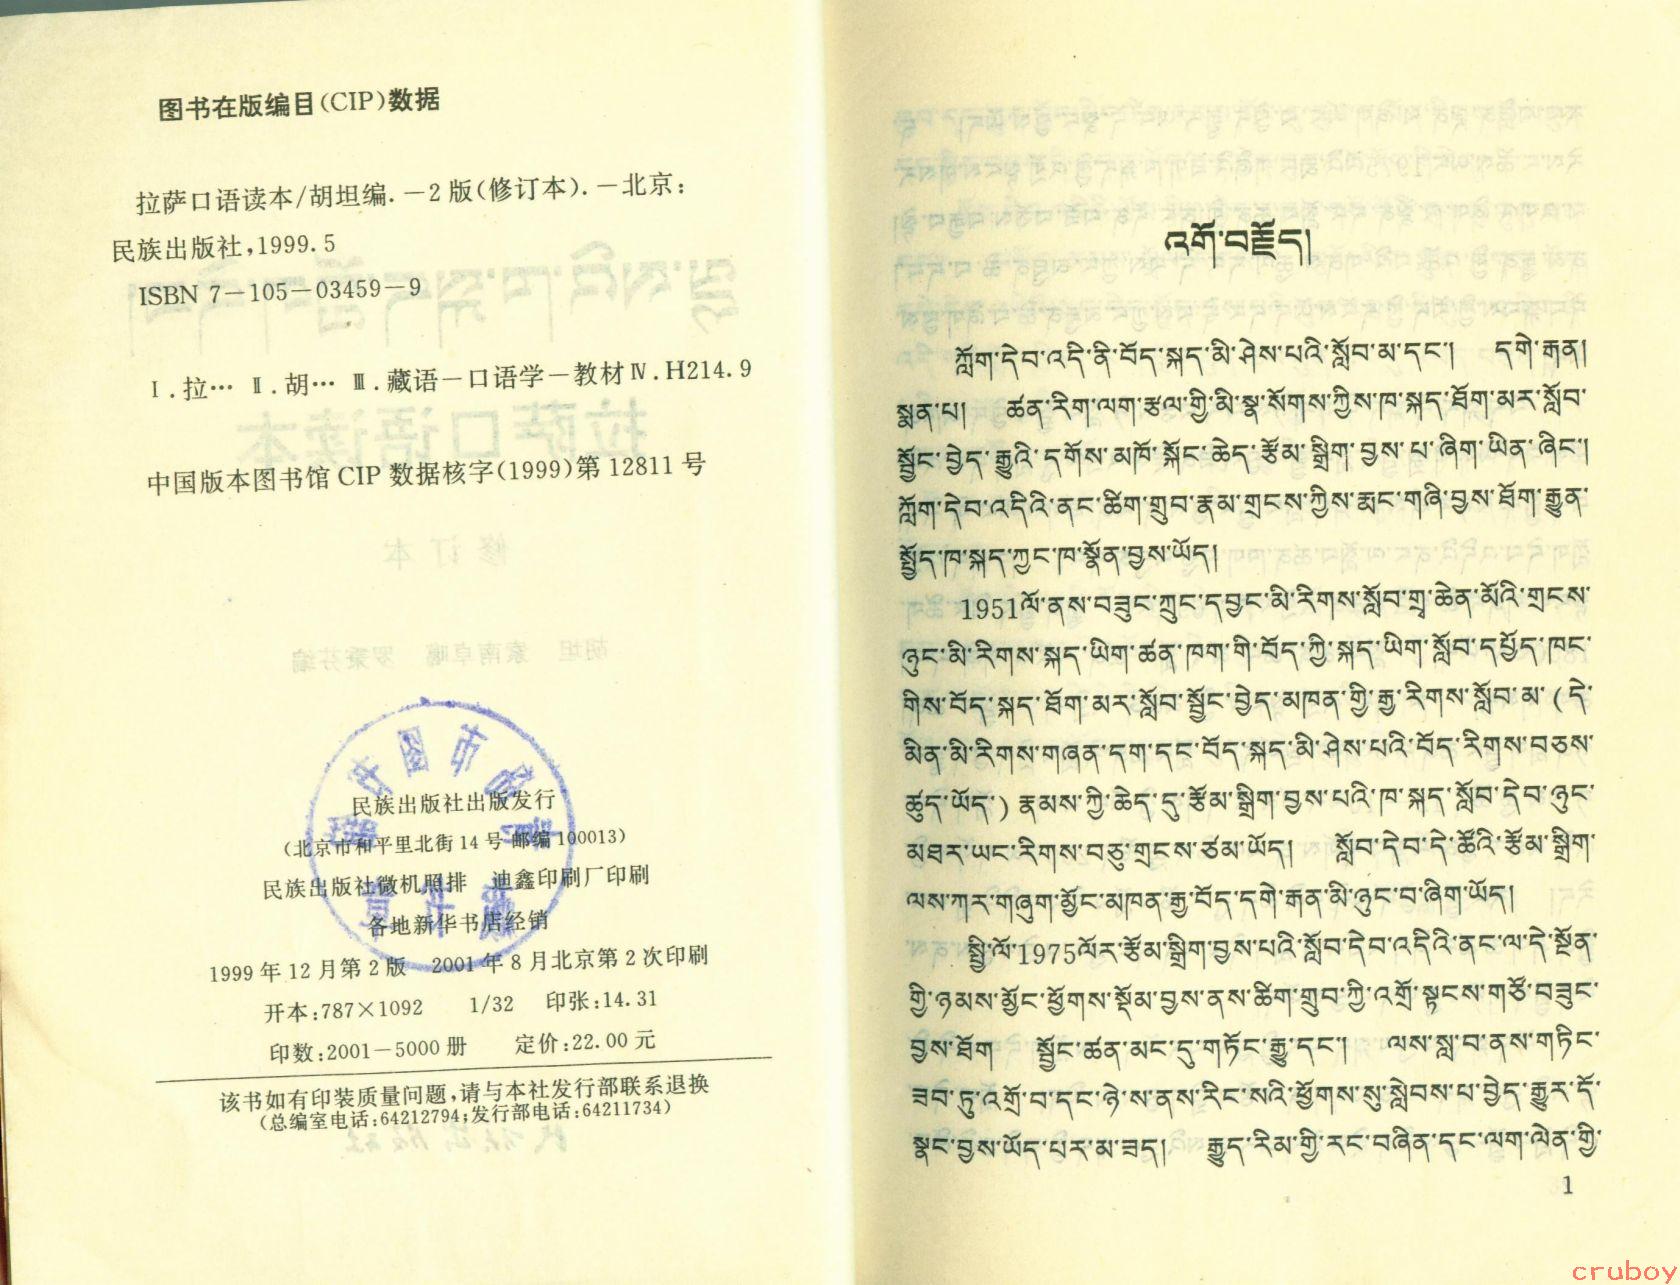 图书在版编目(CIP)数据
拉萨口语读本/胡坦编.—2版(修订本).—北京:
民族出版社,1999.5
ISBN 7-105-03459-9
Ⅰ.拉… Ⅱ.胡… Ⅲ.藏语-口语学-教材Ⅳ.H214.9
中国版本图书馆 CIP 数据核字(1999)第 12811 号
民族出版社出版发行
(北京市和平里北街 14 号 邮编 100013)
民族出版社微机照排 迪鑫印刷厂印刷
各地新华书店经销
1999 年 12 月第 2 版 2001 年 8 月北京第 2 次印刷
开本:787×1092 1/32 印张:14.31
印数:2001-5000 册 定价:22.00 元
该书如有印装质量问题,请与本社发行部联系退换
(总编室电话:64212794;发行部电话:64211734)
འགོ་བརྗོད།
ཀློག་དེབ་འདི་ནི་བོད་སྐད་མི་ཤེས་པའི་སློབ་མ་དང་། དགེ་རྒན།
སྨན་པ། ཚན་རིག་ལག་རྩལ་གྱི་མི་སྣ་སོགས་ཀྱིས་ཁ་སྐད་ཐོག་མར་སློབ་
སྦྱོང་བྱེད་རྒྱུའི་དགོས་མཁོ་སྐོང་ཆེད་རྩོམ་སྒྲིག་བྱས་པ་ཞིག་ཡིན་ཞིང་།
ཀློག་དེབ་འདིའི་ནང་ཚིག་གྲུབ་རྣམ་གྲངས་ཀྱིས་རྨང་གཞི་བྱས་ཐོག་རྒྱུན་
སྤྱོད་ཁ་སྐད་ཀྱང་ཁ་སྣོན་བྱས་ཡོད།
1951ལོ་ནས་བཟུང་ཀྲུང་དབྱང་མི་རིགས་སློབ་གྲྭ་ཆེན་མོའི་གྲངས་
ཉུང་མི་རིགས་སྐད་ཡིག་ཚན་ཁག་གི་བོད་ཀྱི་སྐད་ཡིག་སློབ་དཔྱོད་ཁང་
གིས་བོད་སྐད་ཐོག་མར་སློབ་སྦྱོང་བྱེད་མཁན་གྱི་རྒྱ་རིགས་སློབ་མ་(དེ་
མིན་མི་རིགས་གཞན་དག་དང་བོད་སྐད་མི་ཤེས་པའི་བོད་རིགས་བཅས་
ཚུད་ཡོད་)རྣམས་ཀྱི་ཆེད་དུ་རྩོམ་སྒྲིག་བྱས་པའི་ཁ་སྐད་སློབ་དེབ་ཉུང་
མཐར་ཡང་རིགས་བཅུ་གྲངས་ཙམ་ཡོད། སློབ་དེབ་དེ་ཚོའི་རྩོམ་སྒྲིག་
ལས་ཀར་གཞུག་མྱོང་མཁན་རྒྱ་བོད་དགེ་རྒན་མི་ཉུང་བ་ཞིག་ཡོད།
སྤྱི་ལོ་1975ལོར་རྩོམ་སྒྲིག་བྱས་པའི་སློབ་དེབ་འདིའི་ནང་ལ་དེ་སྔོན་
གྱི་ཉམས་མྱོང་ཕྱོགས་སྡོམ་བྱས་ནས་ཚིག་གྲུབ་ཀྱི་འགྲོ་སྟངས་གཙོ་བཟུང་
བྱས་ཐོག སྦྱོང་ཚན་མང་དུ་གཏོང་རྒྱུ་དང་། ལས་སླ་བ་ནས་གཏིང་
ཟབ་ཏུ་འགྲོ་བ་དང་ཉེ་ས་ནས་རིང་སའི་ཕྱོགས་སུ་སླེབས་པ་བྱེད་རྒྱུར་དོ་
སྣང་བྱས་ཡོད་པར་མ་ཟད། རྒྱུད་རིམ་གྱི་རང་བཞིན་དང་ལག་ལེན་གྱི་
1
cruboy